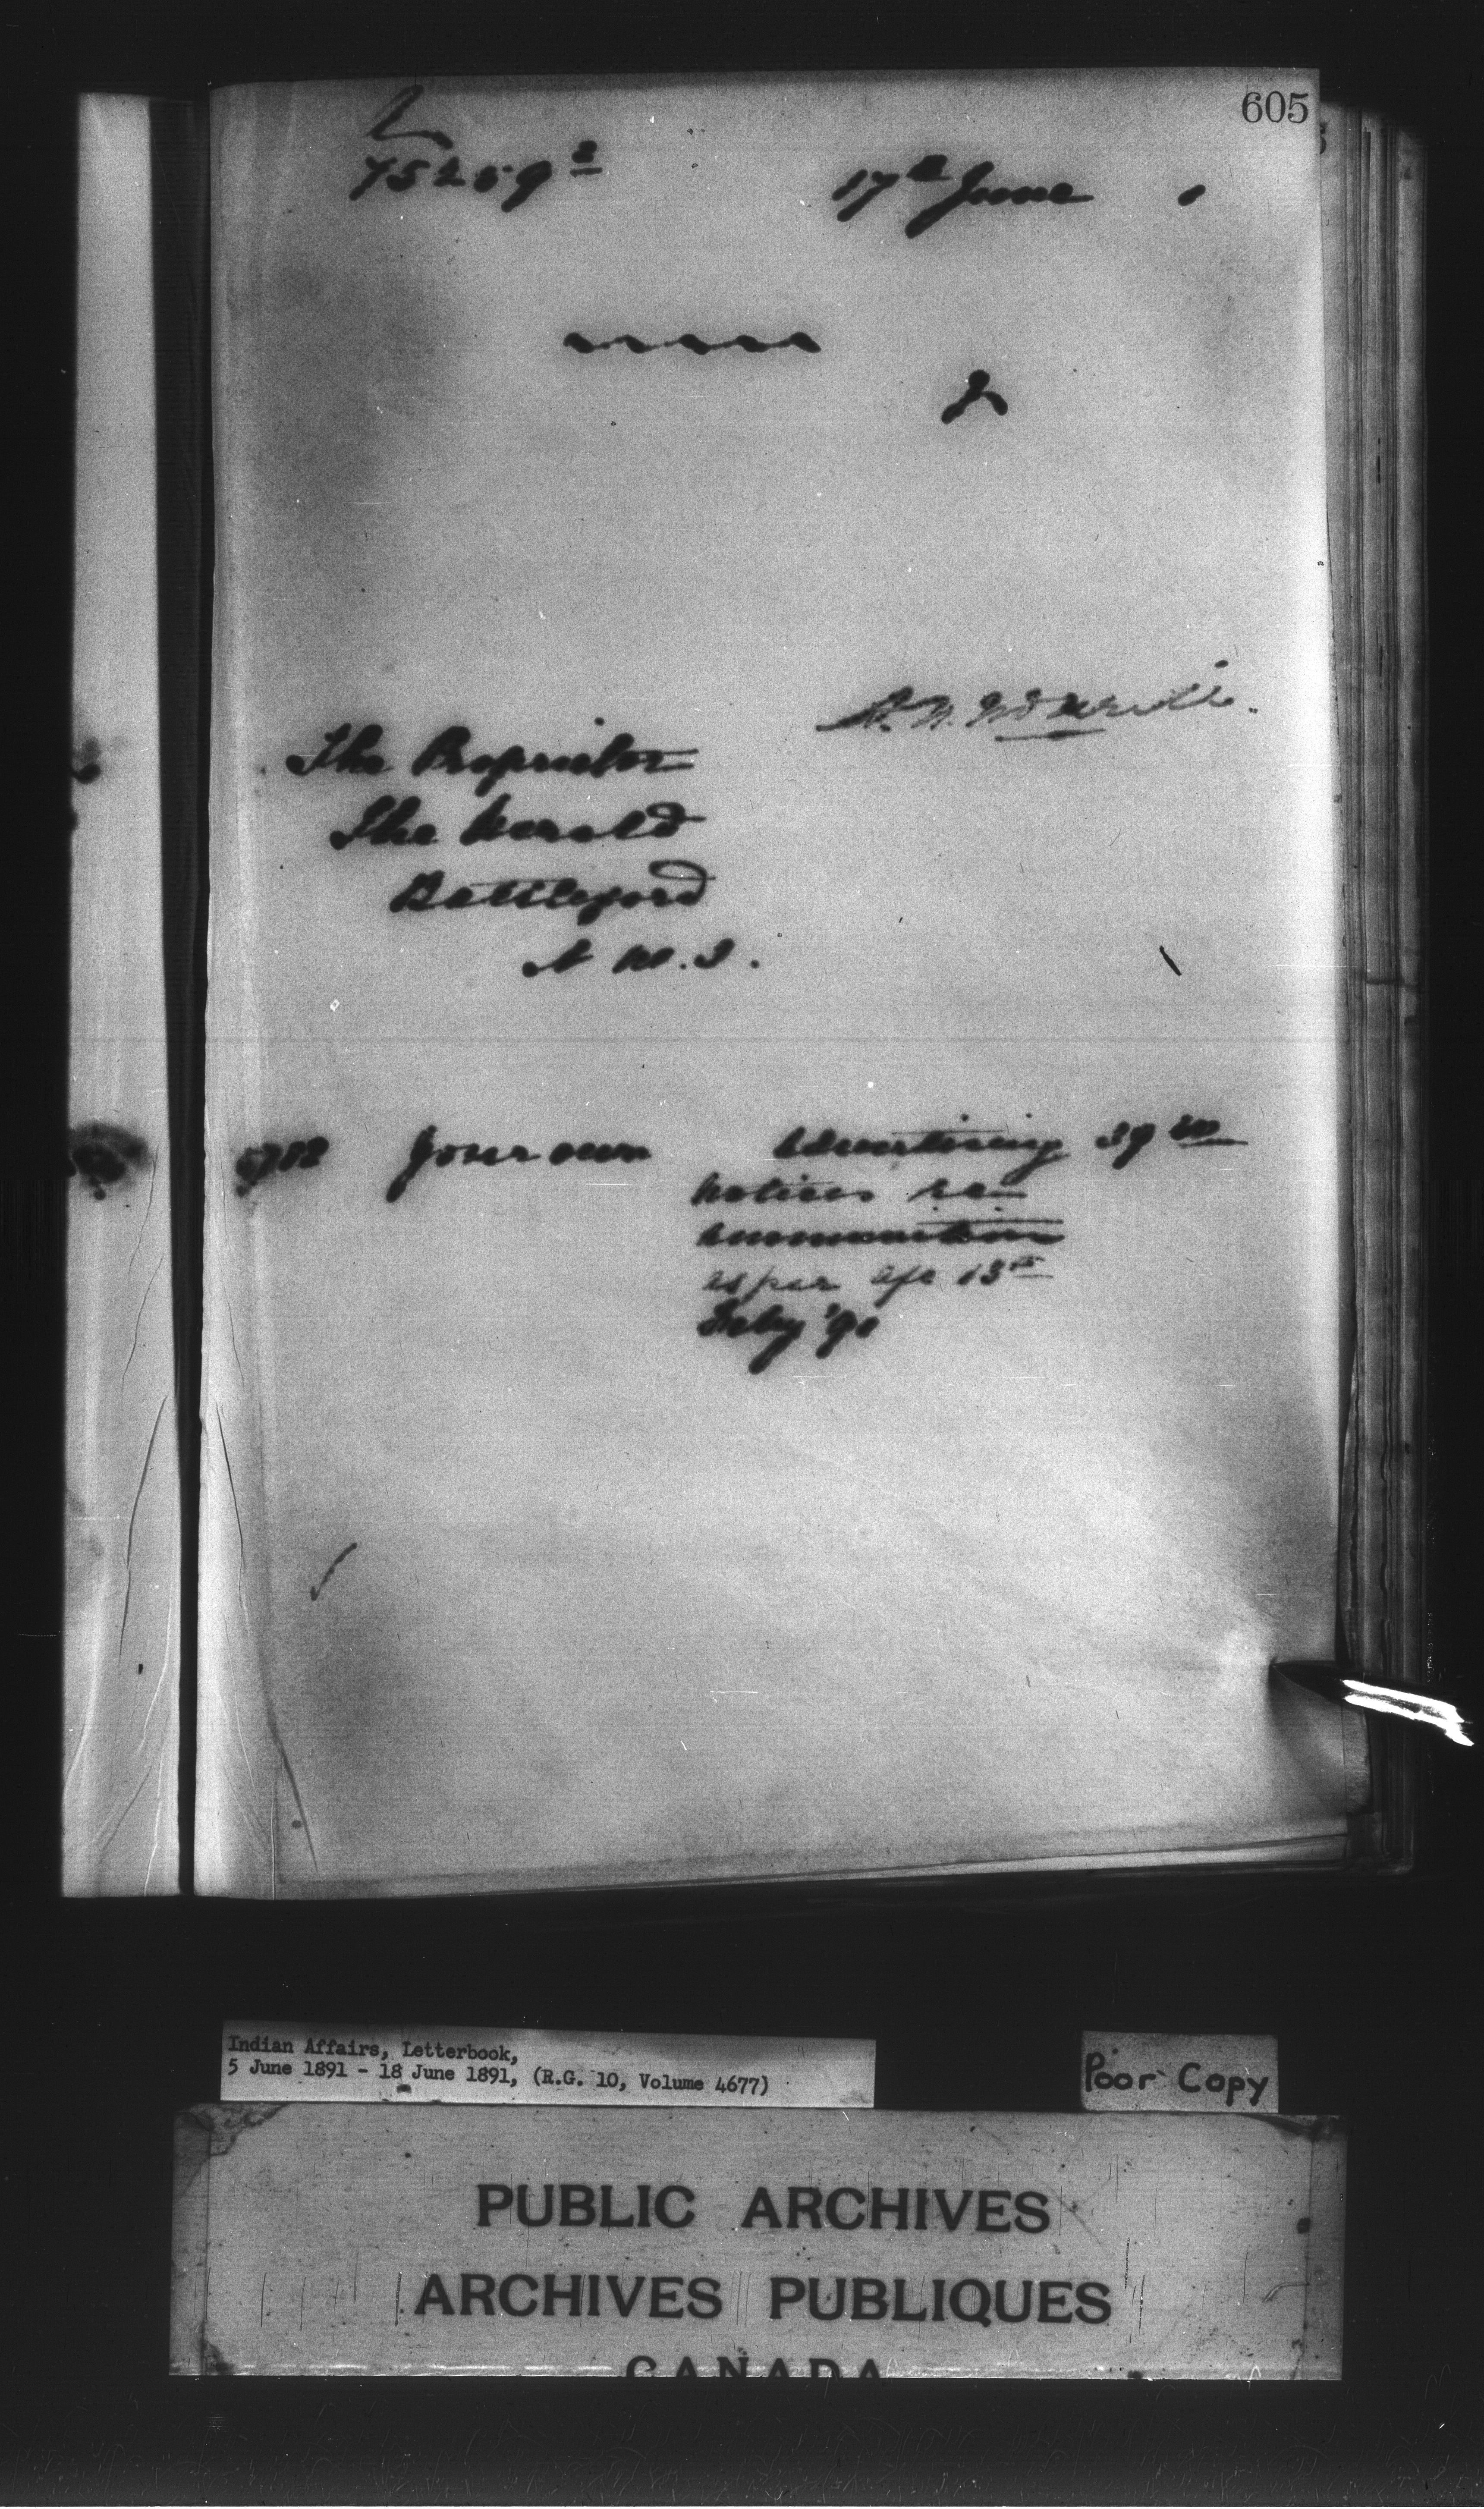 605
L
75259²
17th June 1
The Proprietor
The Herald
Battleford
N. W. T.
5788 Your own Advertising 39 00
notices re
ammunition
as per a/c 13th
Feby '90
Indian Affairs, Letterbook,
5 June 1891 - 18 June 1891, (R.G. 10, Volume 4677)
Poor Copy
PUBLIC ARCHIVES
ARCHIVES PUBLIQUES
CANADA